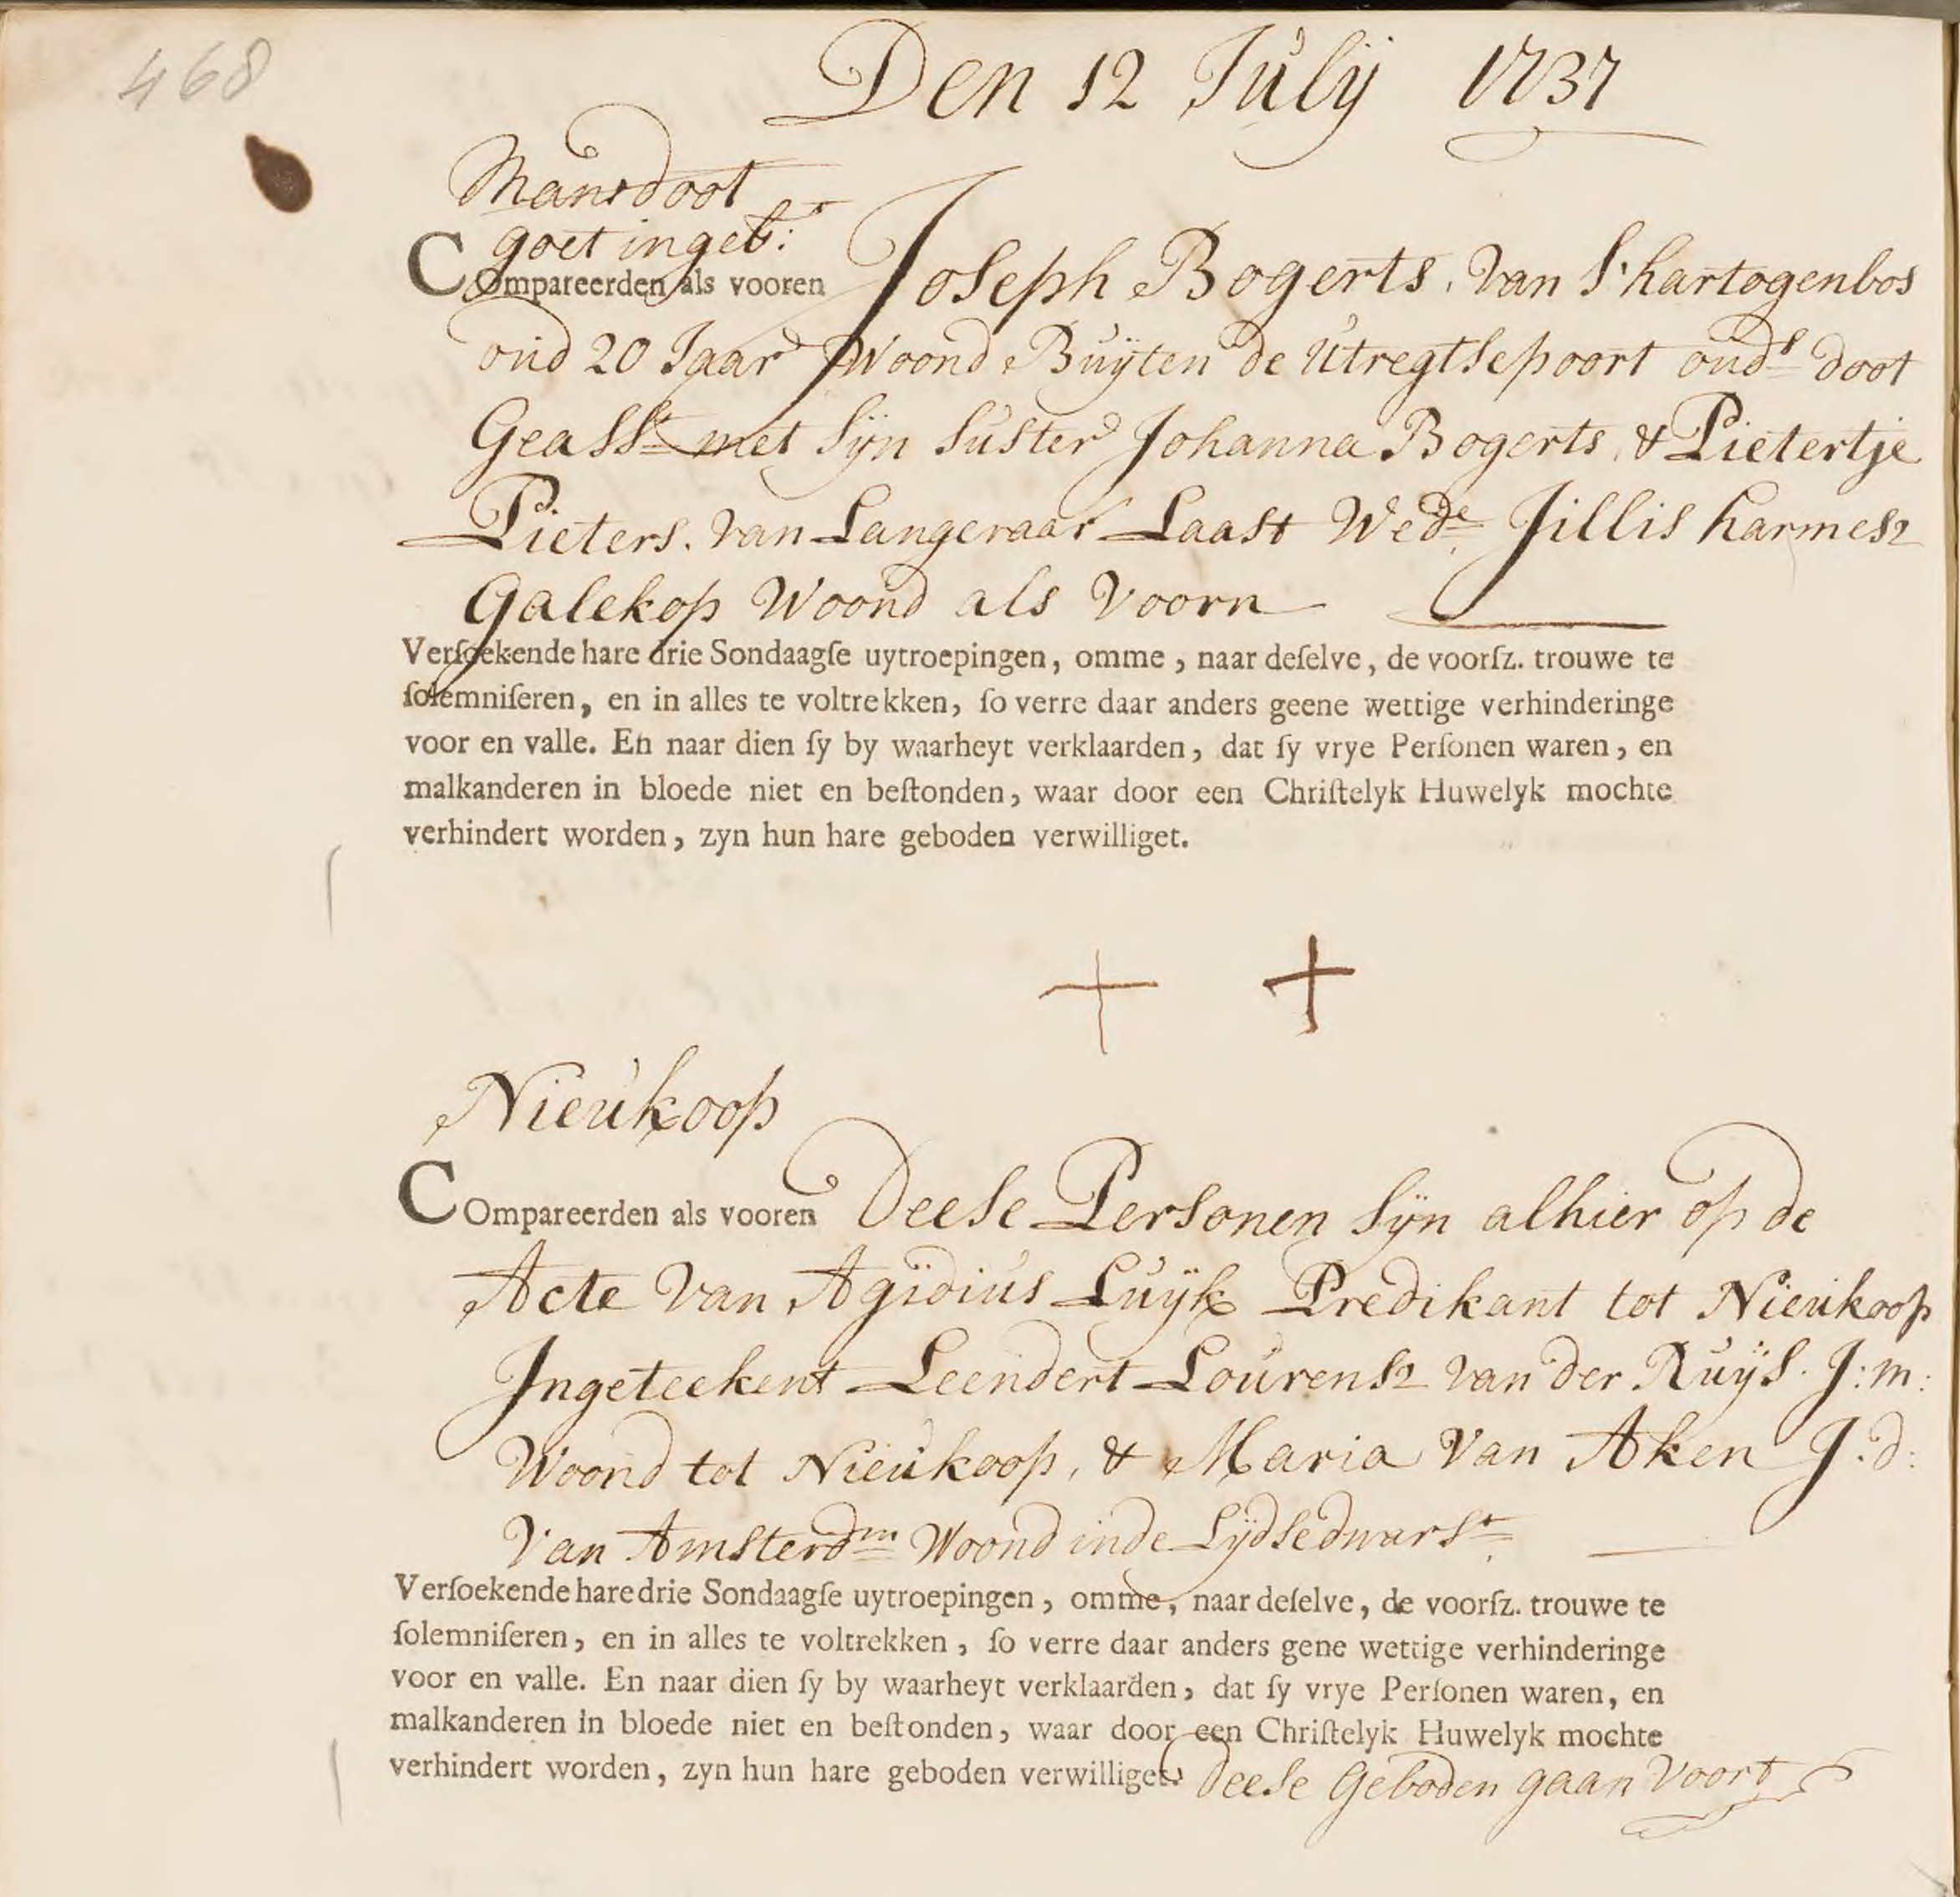 468
Den 12 Julij 1737
Mans doot
goet ingeb:r
COmpareerden als vooren Joseph Bogerts, van S'hartogenbos
oud 20 Jaar Woond Buÿten de Utregtsepoort ouds doot
Geasst met Sÿn Suster Johanna Bogerts, & Pietertje
Pieters. van Langeraar Laast Wede Jillis harmesz
Galekop Woond als Voorn
Verſoekende hare drie Sondaagſe uytroepingen, omme, naar deſelve, de voorſz. trouwe te
ſolemniſeren, en in alles te voltrekken, ſo verre daar anders geene wettige verhinderinge
voor en valle. En naar dien ſy by waarheyt verklaarden, dat ſy vrye Perſonen waren, en
malkanderen in bloede niet en beſtonden, waar door een Chriſtelyk Huwelyk mochte
verhindert worden, zyn hun hare geboden verwilliget.
+ +
Nieukoop
COmpareerden als vooren Deese Personen Sÿn alhier op de
Acte Van Agidius Luÿk Predikant tot Nieukoop
Ingeteekent Leendert Lourensz van der Ruÿs. J:m:
Woond tot Nieukoop, & Maria Van Aken J:d:
Van Amsterdm Woond in de Lydsedwarst
Verſoekende hare drie Sondaagſe uytroepingen, omme, naar deſelve, de voorſz. trouwe te
ſolemniſeren, en in alles te voltrekken, ſo verre daar anders gene wettige verhinderinge
voor en valle. En naar dien ſy by waarheyt verklaarden, dat ſy vrye Perſonen waren, en
malkanderen in bloede niet en beſtonden, waar door een Chriſtelyk Huwelyk mochte
verhindert worden, zyn hun hare geboden verwilliget. Deese Geboden gaan Voort